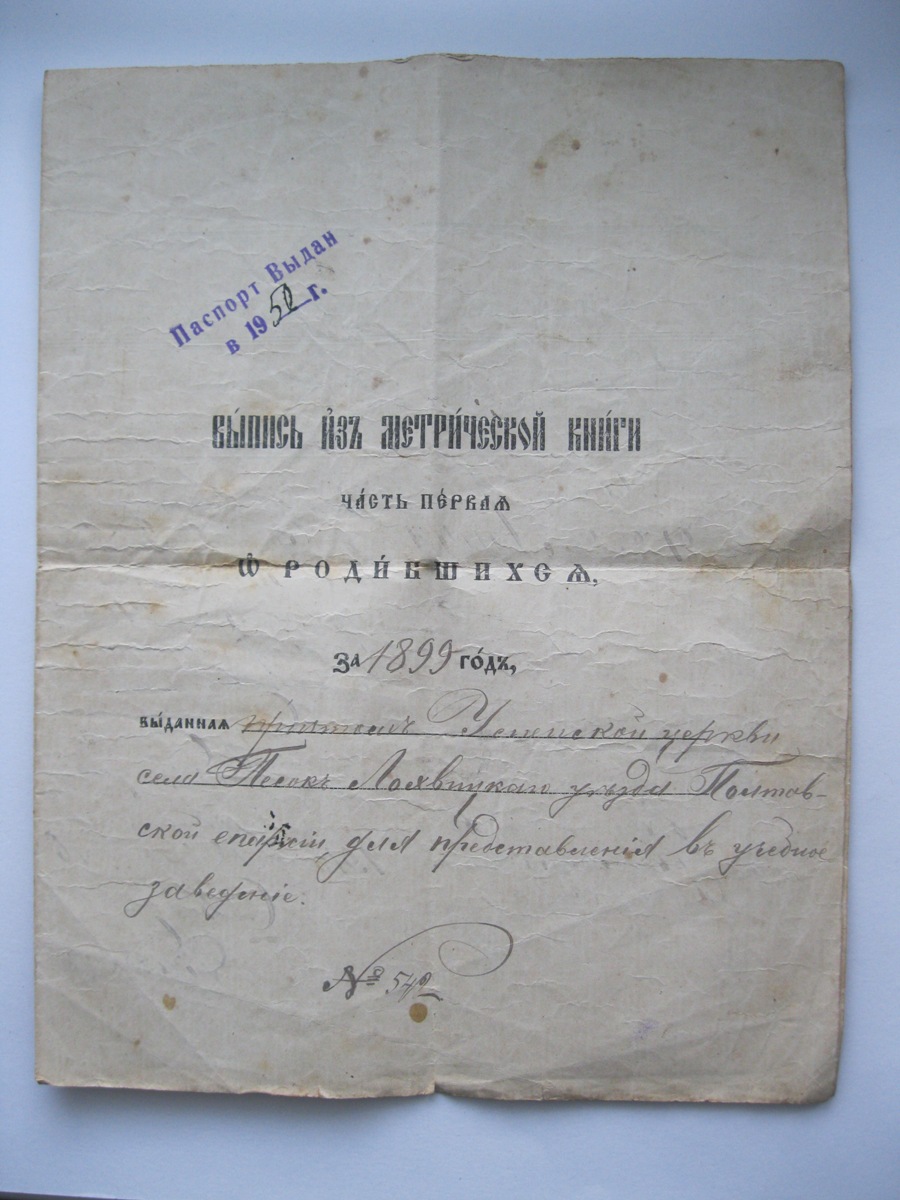 Паспорт Выдан
в 1950 г.
вы́пись и҆зъ метри́ческой кни́ги
ча́сть пе́рваѧ
Ѡ҆ роди́вшихсѧ,
За 1899 го́дъ,
вы́даннаѧ причтомъ Успенской церкви
села Песокъ Лохвицкаго уѣзда Полтав-
ской епархіи для представленія въ учебное
заведеніе.
№ 542